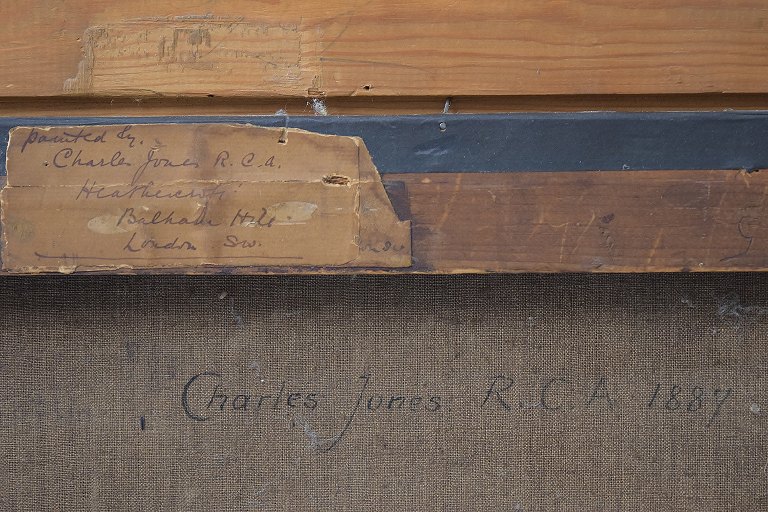 painted by.
Charles Jones R.C.A.
Heathercroft
Balham Hill
London. SW.
Charles Jones. R.C.A 1887